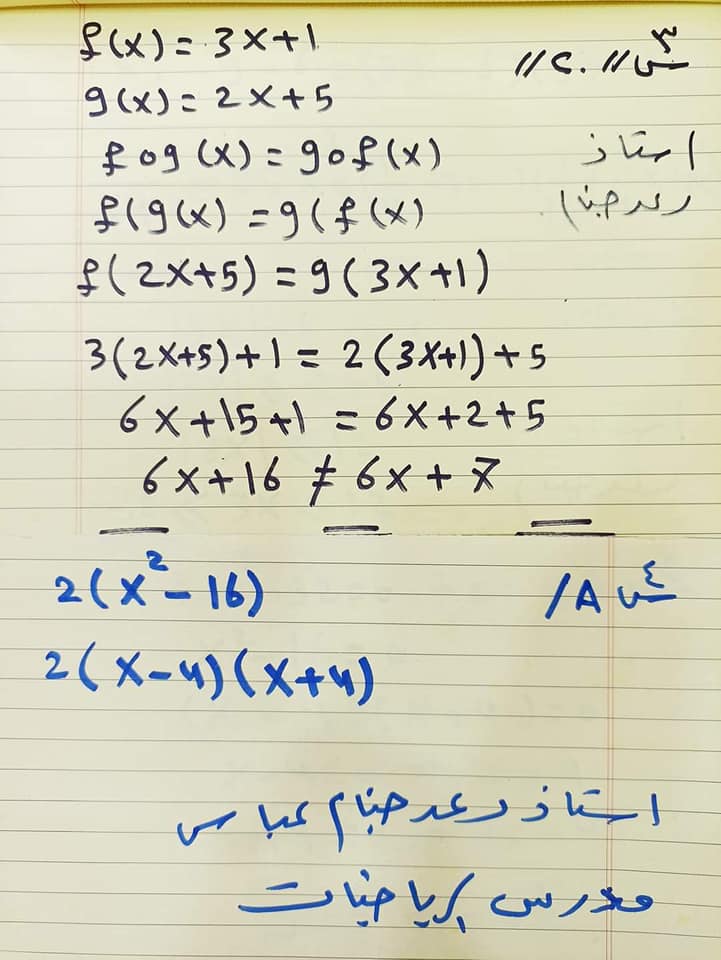 س٣ // C. //
f(x) = 3x+1
g(x) = 2x+5
استاذ
fog (x) = gof(x)
رعد حنا
f(g(x) = g(f(x)
f(2x+5) = g(3x+1)
3(2x+5)+1 = 2(3x+1)+5
6x+15+1 = 6x+2+5
6x+16 ≠ 6x+7
س٤ /A
2(x²-16)
2(x-4)(x+4)
استاذ رعد عباس
مدرس رياضيات